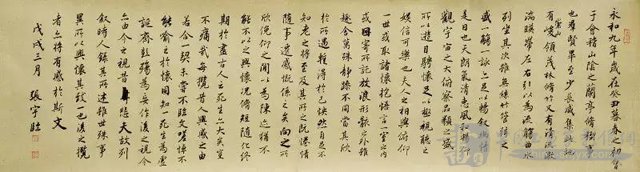 永和九年歲在癸丑暮春之初會
于會稽山陰之蘭亭脩禊事
也羣賢畢至少長咸集此地
有崇山峻領茂林脩竹又有清流激
湍暎帶左右引以為流觴曲水
列坐其次雖無絲竹管弦之
盛一觴一詠亦足以暢敘幽情
是日也天朗氣清惠風和暢仰
觀宇宙之大俯察品類之盛
所以遊目騁懷足以極視聽之
娛信可樂也夫人之相與俯仰
一世或取諸懷抱悟言一室之內
或因寄所託放浪形骸之外雖
趣舍萬殊靜躁不同當其欣
於所遇暫得於己快然自足不
知老之將至及其所之既惓情
隨事遷感慨係之矣向之所
欣俛仰之間以為陳迹猶不
能不以之興懷況脩短隨化終
期於盡古人云死生亦大矣豈
不痛哉每攬昔人興感之由
若合一契未嘗不臨文嗟悼不
能喻之於懷固知一死生為虛
誕齊彭殤為妄作後之視今
亦由今之視昔悲夫故列
敘時人錄其所述雖世殊事
異所以興懷其致一也後之攬
者亦將有感於斯文
戊戌三月 張宇